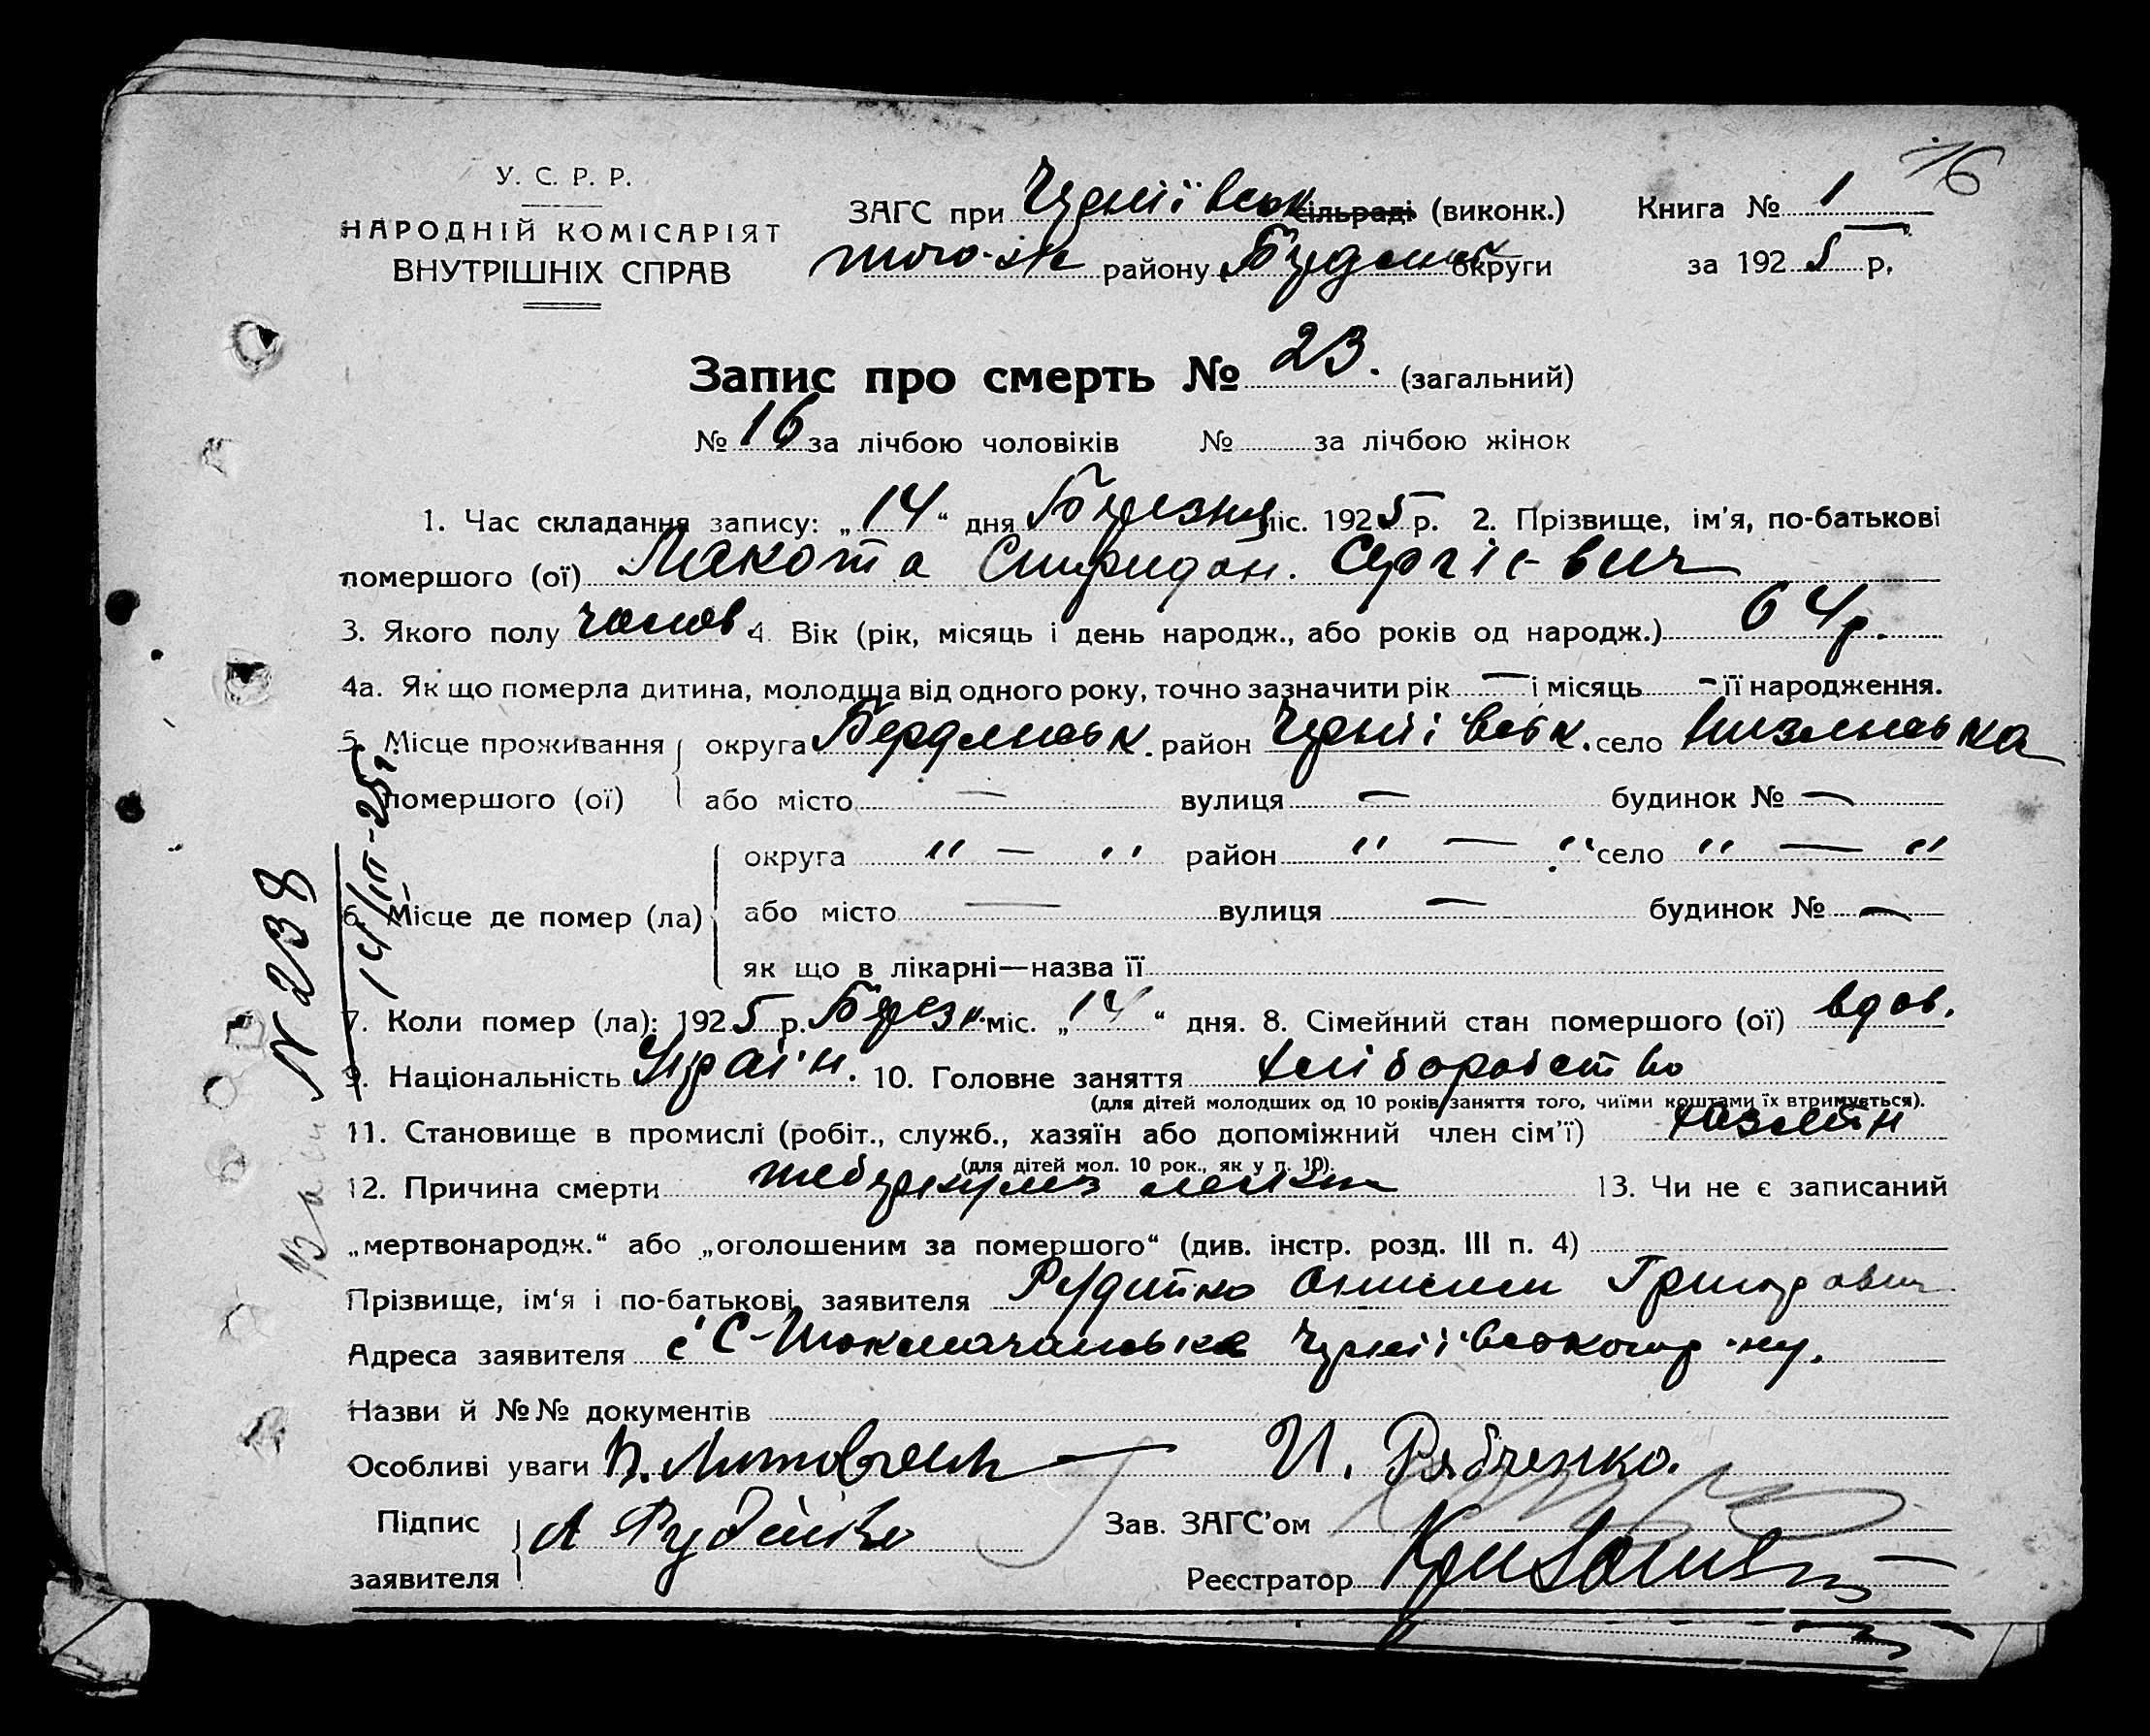 76
У. С. Р. Р.
НАРОДНІЙ КОМІСАРІЯТ
ВНУТРІШНІХ СПРАВ
ЗАГС при Черніївськ сільраді (виконк.)
того-ж району Бердянськ округи
Книга № 1
за 1925 р.
Запис про смерть № 23. (загальний)
№ 16 за лічбою чоловіків № за лічбою жінок
1. Час складання запису: „14“ дня Березня міс. 1925 р. 2. Прізвище, ім'я, по-батькові
помершого (ої) Макота Спиридон. Сергієвич
3. Якого полу чолов. 4. Вік (рік, місяць і день народж., або років од народж.) 64 р.
4а. Як що померла дитина, молодща від одного року, точно зазначити рік — і місяць - її народження.
5. Місце проживання округа Бердянськ. район Черніївськ. село
помершого (ої) або місто — вулиця — будинок № —
округа " — " район " — " село " — "
6. Місце де помер (ла) або місто — вулиця — будинок № —
як що в лікарні—назва її
7. Коли помер (ла): 1925 р. Березн. міс. „14“ дня. 8. Сімейний стан помершого (ої) вдов.
9. Національність Україн. 10. Головне заняття хліборобство
(для дітей молодших од 10 років заняття того, чиїми коштами їх втримується).
11. Становище в промислі (робіт., служб., хазяїн або допоміжний член сім'ї) хазяїн
(для дітей мол. 10 рок., як у п. 10).
12. Причина смерти туберкульоз легких 13. Чи не є записаний
„мертвонародж.“ або „оголошеним за помершого“ (див. інстр. розд. III п. 4)
Прізвище, ім'я і по-батькові заявителя Рудейко Григорович
Адреса заявителя с С-Токмачанська Черніївського р-ну.
Назви й №№ документів
Особливі уваги П. И. Рябченко.
Підпис А Рудейко Зав. ЗАГС'ом
заявителя Реєстратор
N 238
14/III-25р.